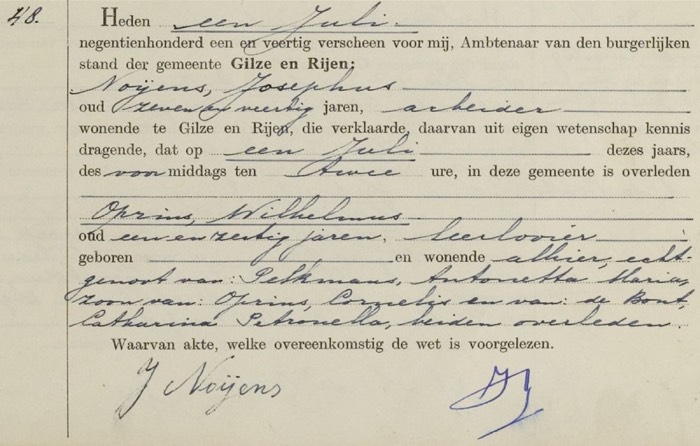 48. Heden een Juli
negentienhonderd een en veertig verscheen voor mij, Ambtenaar van den burgerlijken
stand der gemeente Gilze en Rijen:
Noijens, Josephus
oud zeven en veertig jaren, arbeider
wonende te Gilze en Rijen, die verklaarde, daarvan uit eigen wetenschap kennis
dragende, dat op een Juli dezes jaars,
des voormiddags ten twee ure, in deze gemeente is overleden
Oprins, Wilhelmus
oud een en zestig jaren, leerlooier
geboren en wonende alhier, echt-
genoot van: Pelkmans, Antonetta Maria,
zoon van: Oprins, Cornelis en van: de Bont,
Catharina Petronella, beiden overleden.
Waarvan akte, welke overeenkomstig de wet is voorgelezen.
J Noijens